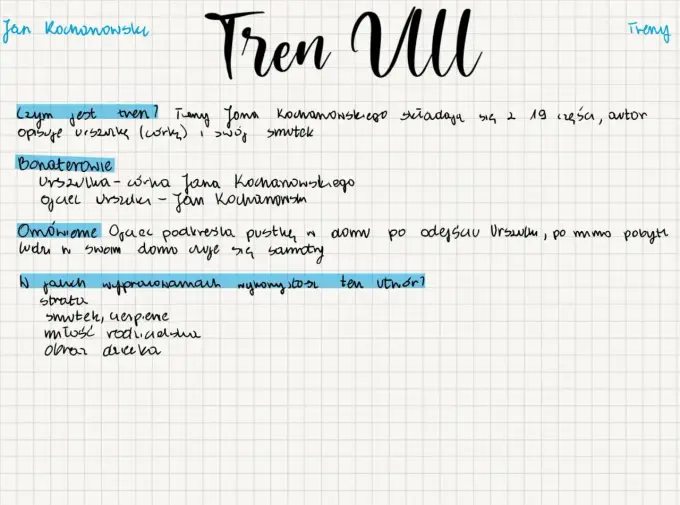 Jan Kochanowski
Tren VIII
Treny
Czym jest tren? Treny Jana Kochanowskiego składają się z 19 części, autor
opisuje Urszulkę (córkę) i swój smutek
Bohaterowie
Urszulka - córka Jana Kochanowskiego
ojciec Urszulki - Jan Kochanowski
Omówienie Ojciec podkreśla pustkę w domu po odejściu Urszulki, po mimo pobytu
ludzi w swoim domu czuje się samotny
W jakich wypracowaniach wykorzystasz ten utwór?
strata
smutek, cierpienie
miłość rodzicielska
obraz dziecka